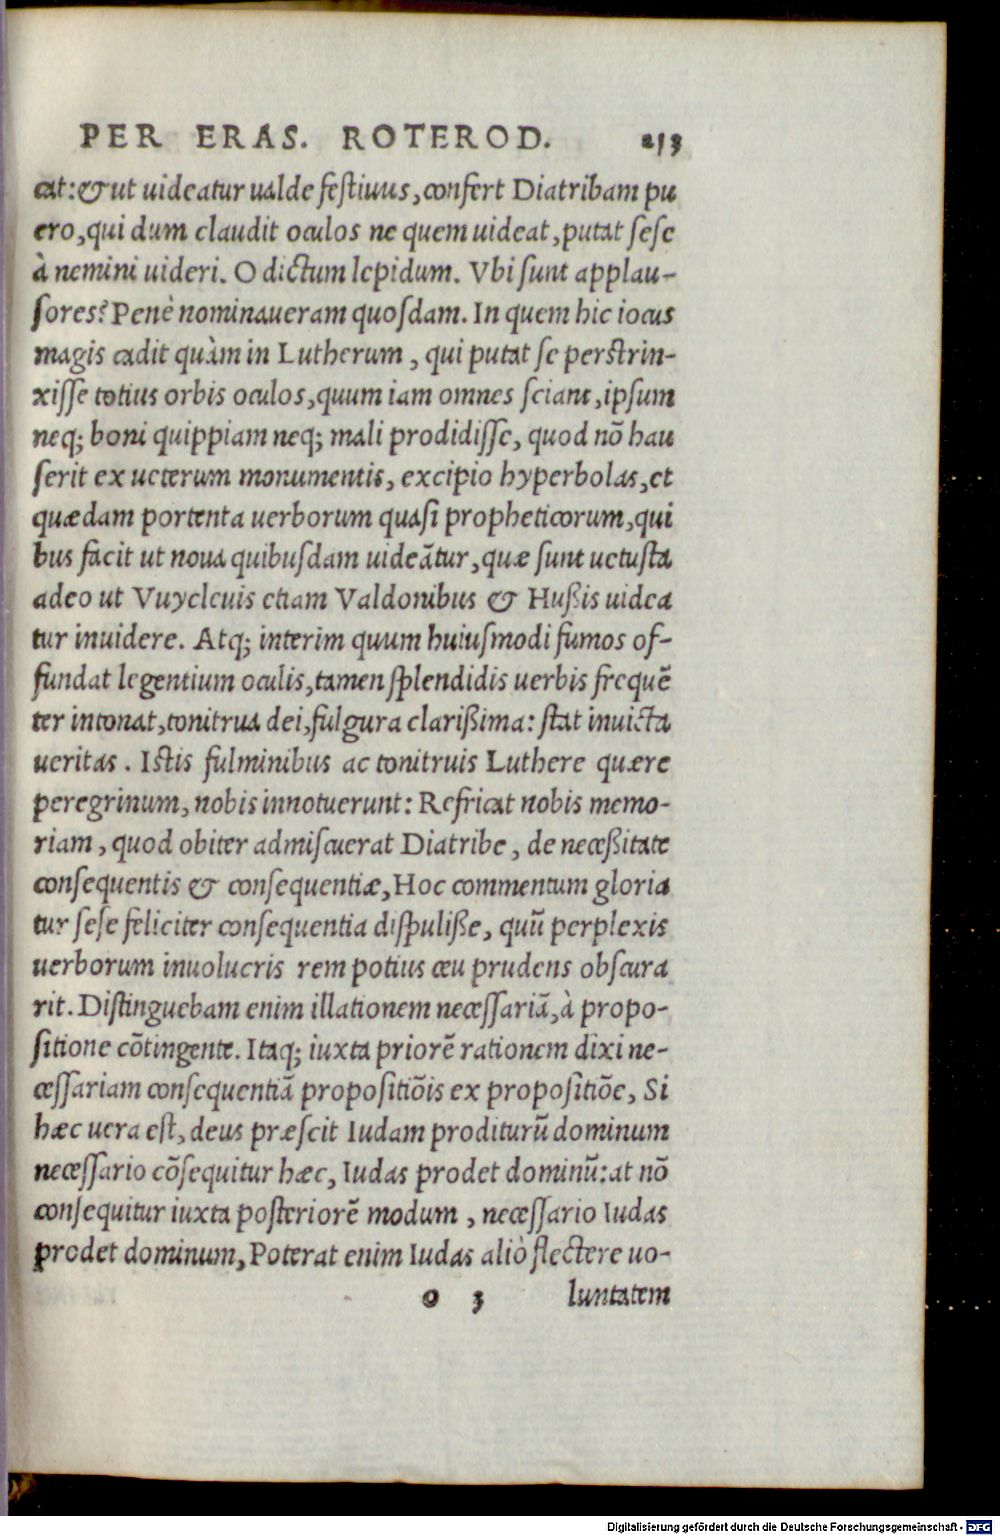 PER ERAS. ROTEROD. 213
cat:& ut uideatur ualde festiuus, confert Diatribam pu
ero, qui dum claudit oculos ne quem uideat, putat sese
à nemini uideri. O dictum lepidum. Vbi sunt applau-
sores? Penè nominaueram quosdam. In quem hic iocus
magis cadit quàm in Lutherum, qui putat se perstrin-
xisse totius orbis oculos, quum iam omnes sciant, ipsum
neq; boni quippiam neq; mali prodidisse, quod nō hau
serit ex ueterum monumentis, excipio hyperbolas, et
quædam portenta uerborum quasi propheticorum, qui
bus facit ut noua quibusdam uideātur, quæ sunt uetusta
adeo ut Vuycleuis etiam Valdonibus & Hußis uidea
tur inuidere. Atq; interim quum huiusmodi fumos of-
fundat legentium oculis, tamen splendidis uerbis frequē
ter intonat, tonitrua dei, fulgura clarißima: stat inuicta
ueritas. Istis fulminibus ac tonitruis Luthere quære
peregrinum, nobis innotuerunt: Refricat nobis memo-
riam, quod obiter admiscuerat Diatribe, de neceßitate
consequentis & consequentiæ, Hoc commentum gloria
tur sese feliciter consequentia dispuliße, quū perplexis
uerborum inuolucris rem potius ceu prudens obscura
rit. Distinguebam enim illationem necessariā, à propo-
sitione cōtingente. Itaq; iuxta priorē rationem dixi ne-
cessariam consequentiā propositiōis ex propositiōe, Si
hæc uera est, deus præscit Iudam proditurū dominum
necessario cōsequitur hæc, Iudas prodet dominū: at nō
consequitur iuxta posteriorē modum, necessario Iudas
prodet dominum, Poterat enim Iudas aliò flectere uo-
o 3 luntatem
Digitalisierung gefördert durch die Deutsche Forschungsgemeinschaft - DFG